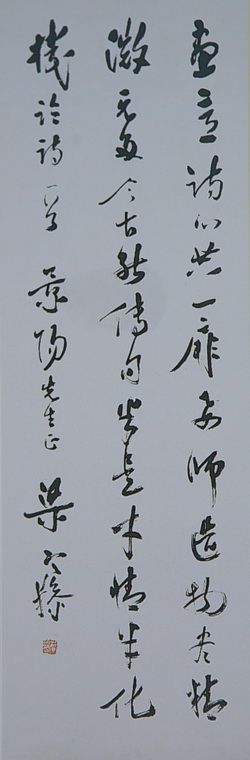 画意诗心共一扉要师造物尽精
微无多今古能传句岂是才情半化
机论诗一首 景阳先生正 梁